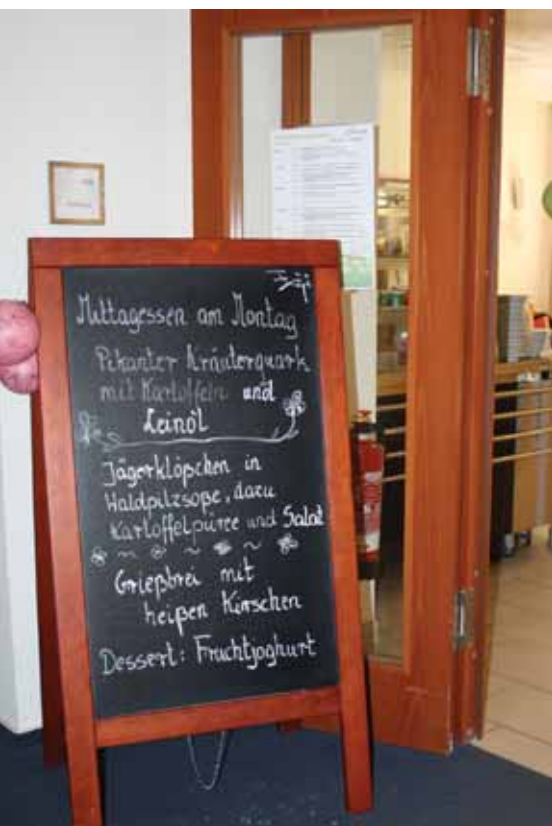 Mittagessen am Montag
Pikanter Kräuterquark
mit Kartoffeln und
Leinöl
Jägerklöpschen in
Waldpilzsoße, dazu
Kartoffelpüree und Salat
Grießbrei mit
heißen Kirschen
Dessert: Fruchtjoghurt